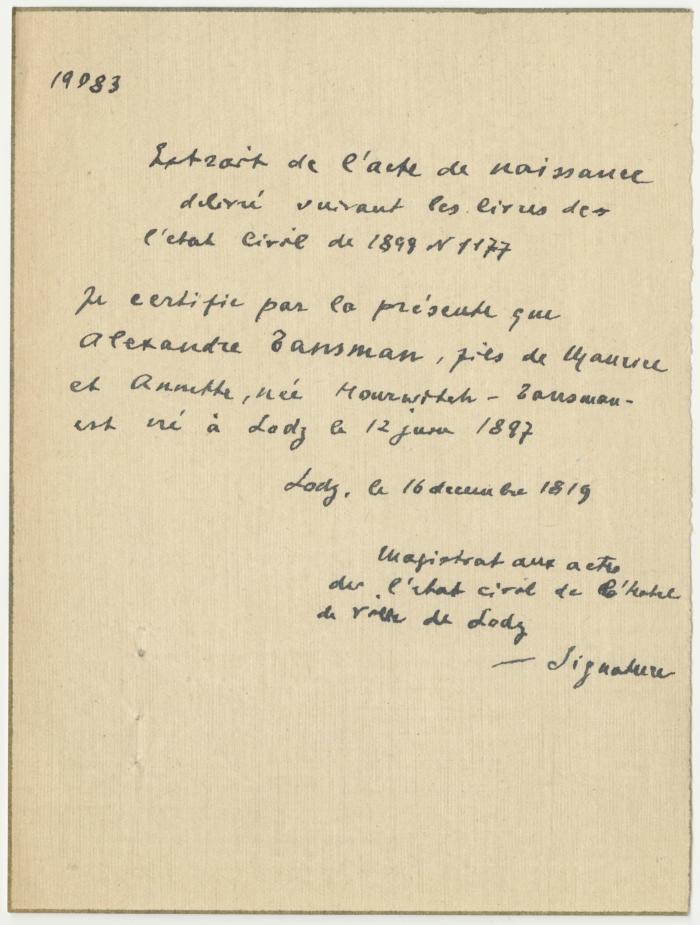 19083
Extrait de l'acte de naissance
délivré suivant les livres des
l'état Civil de 1899 N 1177
Je certifie par la présente que
Alexandre Tansman, fils de Maurice
et Annette, née Hourwitch - Tansman -
est né à Lodz le 12 juin 1897
Lodz, le 16 decembre 1819
Magistrat aux actes
de l'état civil de l'Hotel
de Ville de Lodz
— Signature